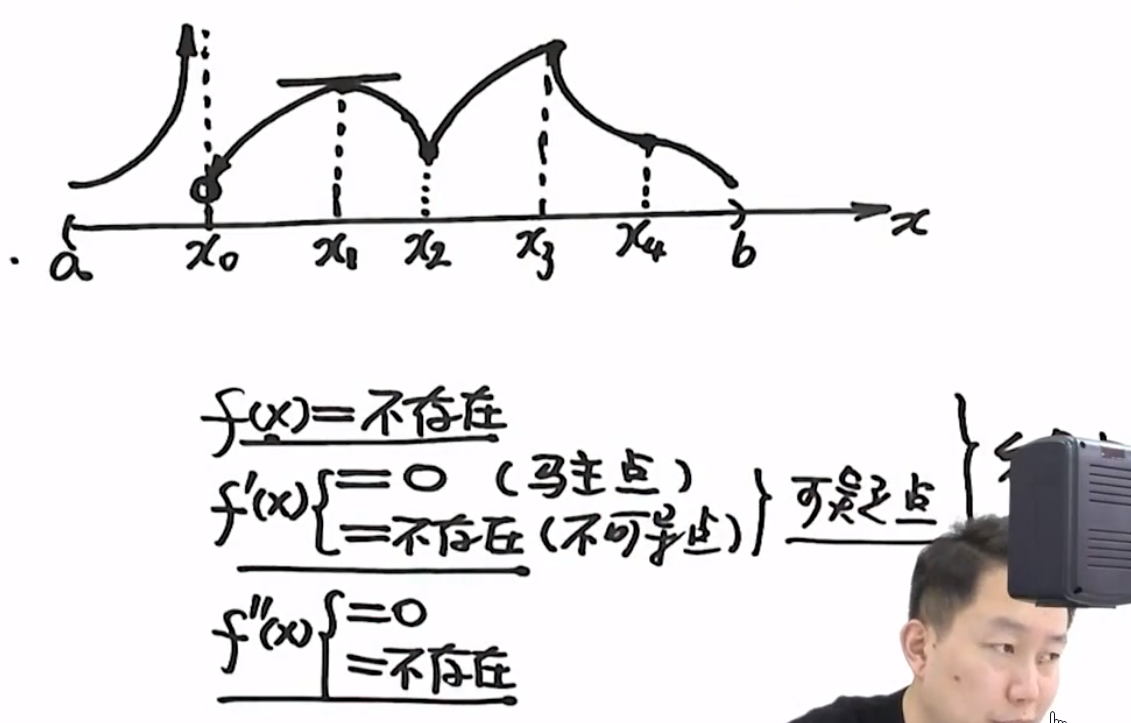 a x₀ x₁ x₂ x₃ x₄ b x
f(x)=不存在
f'(x){=0 (马主点)
=不存在(不可导点)} 可疑点
f''(x){=0
=不存在